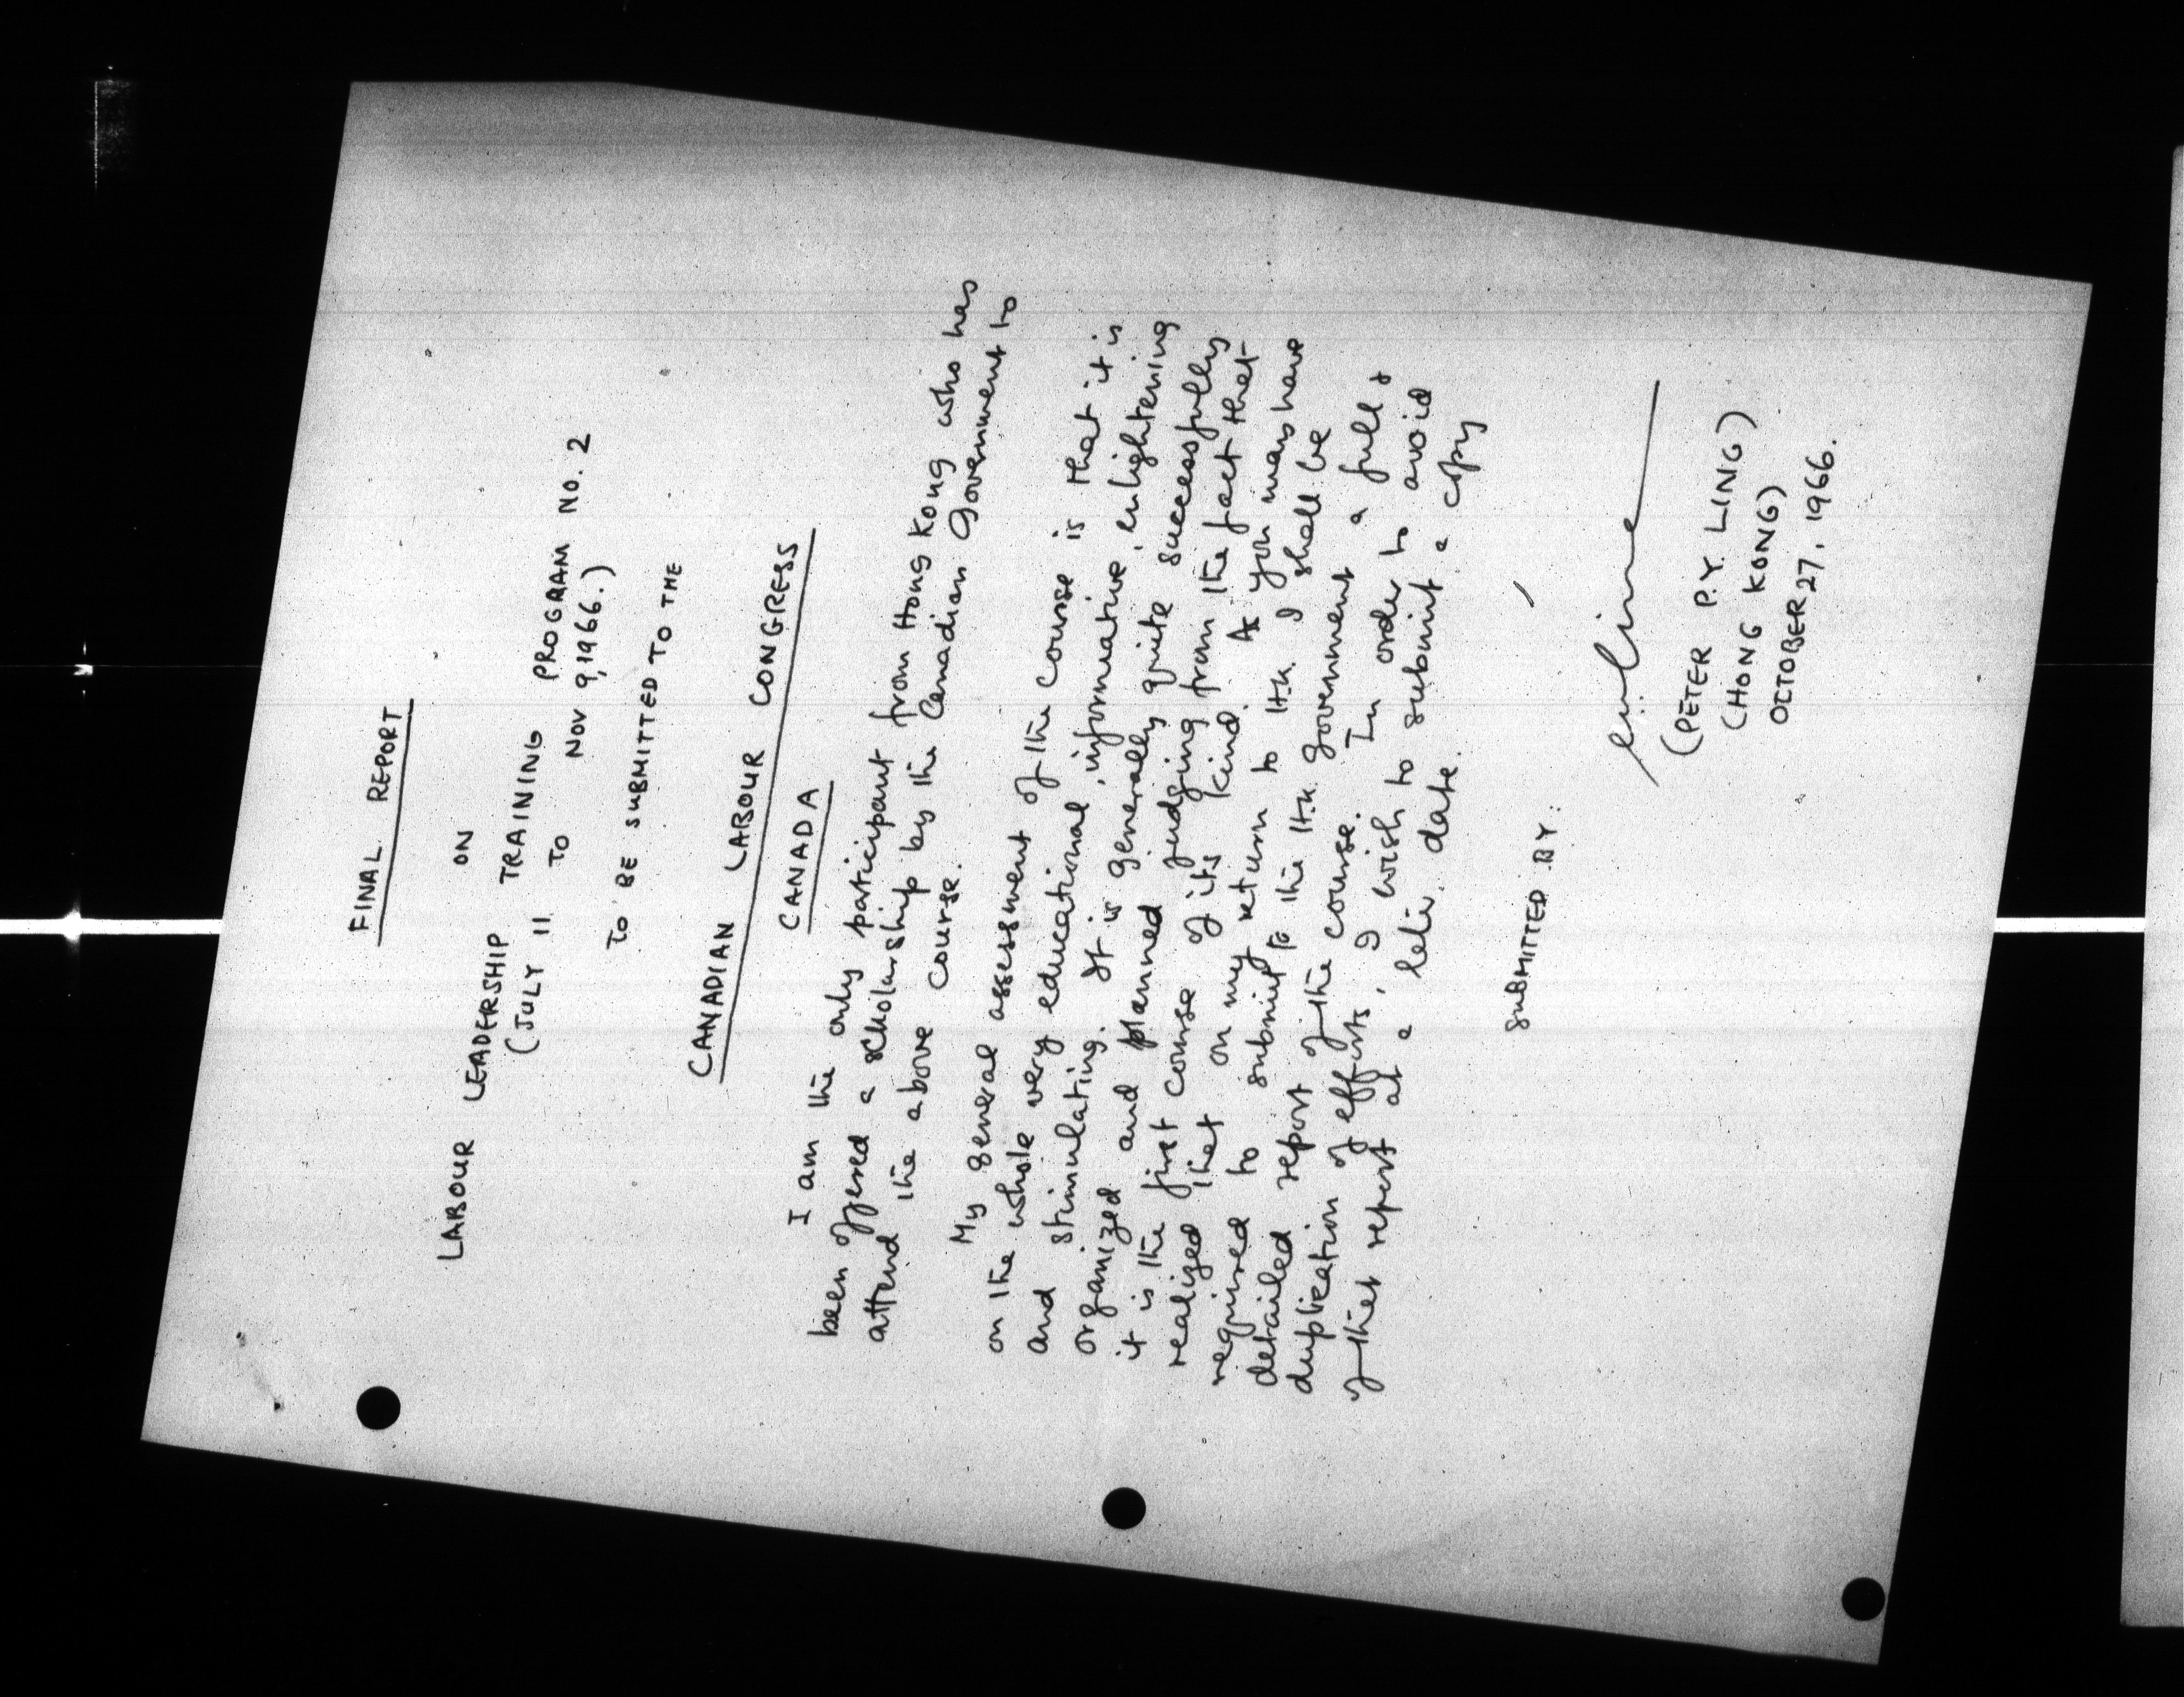 FINAL REPORT
ON
LABOUR LEADERSHIP TRAINING PROGRAM NO. 2
(JULY 11 TO NOV 9, 1966.)
TO BE SUBMITTED TO THE
CANADIAN LABOUR CONGRESS
CANADA
I am the only participant from Hong Kong who has
been offered a scholarship by the Canadian Government to
attend the above course.
My general assessment of the course is that it is
on the whole very educational, informative, enlightening
and stimulating. It is generally quite successfully
organized and planned judging from the fact that
it is the first course of its kind. As you may have
realized that on my return to H.K. I shall be
required to submit to the H.K. Government a full &
detailed report of the course. In order to avoid
duplication of efforts, I wish to submit a copy
of that report at a later date.
SUBMITTED BY:
(PETER P.Y. LING)
(HONG KONG)
OCTOBER 27, 1966.